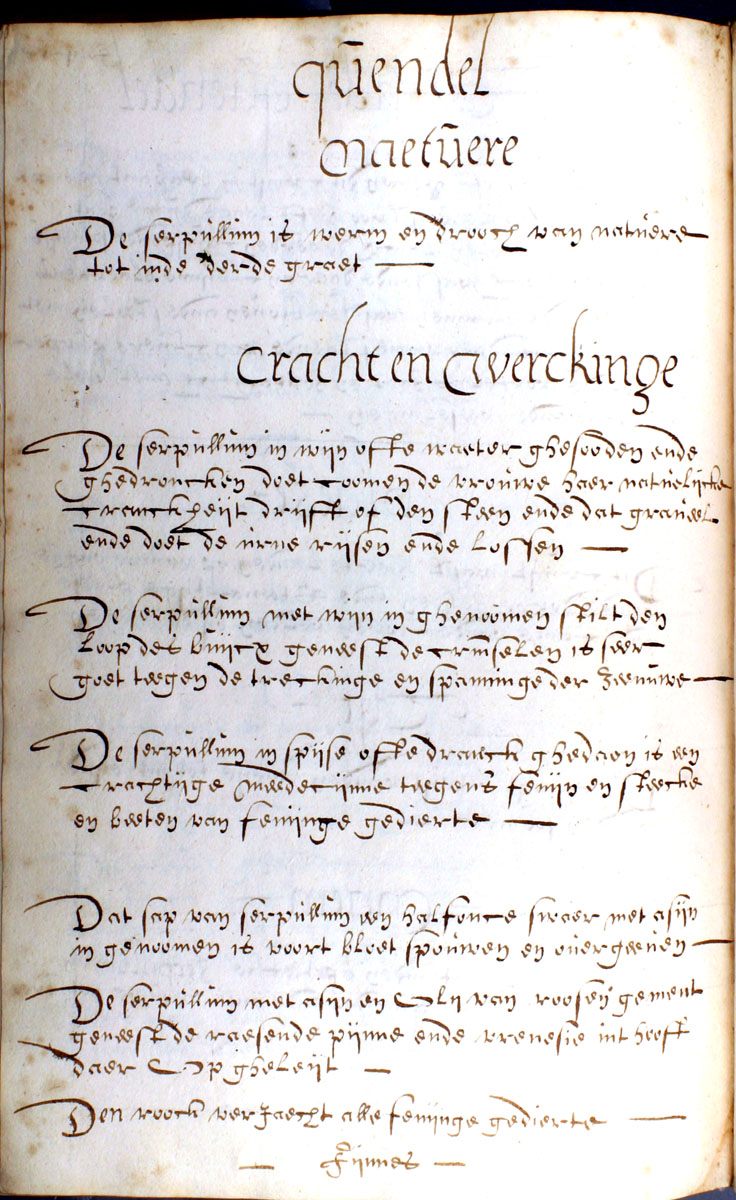 quendel
Naetuere
De serpullum is werm en drooch van natuere
tot inde derde graet
Cracht en Werckinge
De serpullum in wijn ofte waeter ghesooden ende
ghedroncken doet coomen de vrouwe haer natuelijcke
cranckheijt drijft of den steen ende dat graueel
ende doet de urne rijsen ende lossen
De serpullum met wijn in ghenoomen stilt den
loop des buijcx geneest de crimselen is seer
goet teegen de treckinge en spanninge der zeenuwe
De serpullum in spijse ofte dranck ghedaen is een
crachtijge meedecijnne teegens fenijn en steecke
en beeten van fenijnge gedierte
Dat sap van serpullum een half once swaer met asijn
in genoomen is voort bloet spouwen en ouergeeuen
De serpullum met asijn en Olij van roosen gement
geneest de raesende pijnne ende vrenesie int hooft
daer Op gheleijt
Den roock verJaecht alle fenijnge gedierte
Fijnnes